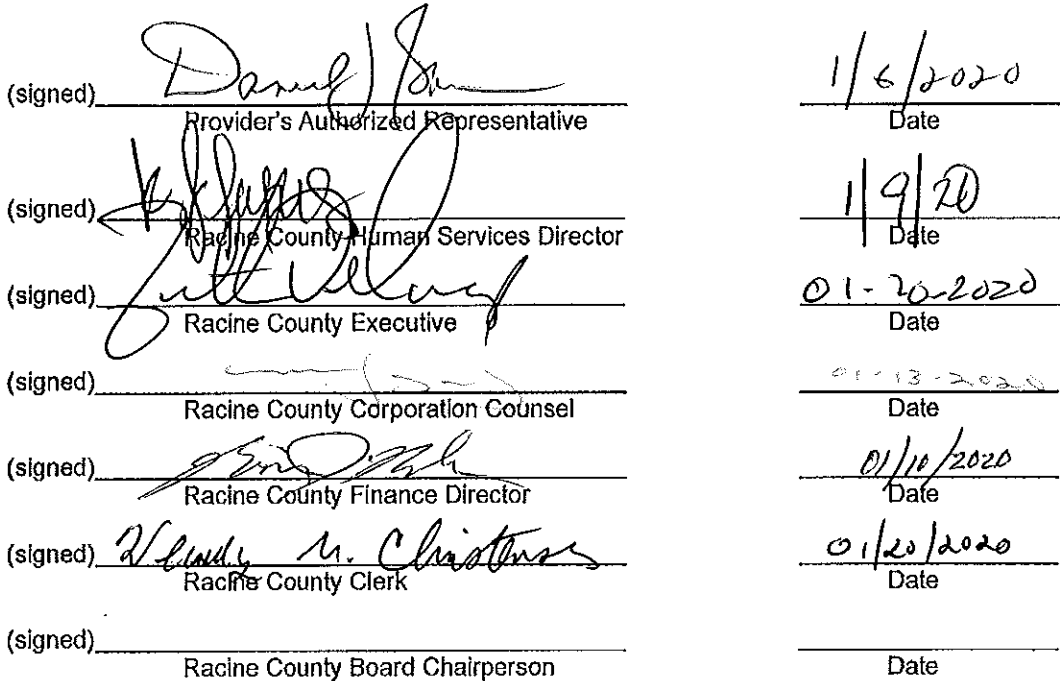 (signed) Daniel J 1/6/2020
Provider's Authorized Representative Date
(signed) 1/9/20
Racine County Human Services Director Date
(signed) 01-20-2020
Racine County Executive Date
(signed) 01-13-2020
Racine County Corporation Counsel Date
(signed) 01/10/2020
Racine County Finance Director Date
(signed) Wendy M. Christensen 01/20/2020
Racine County Clerk Date
(signed)
Racine County Board Chairperson Date